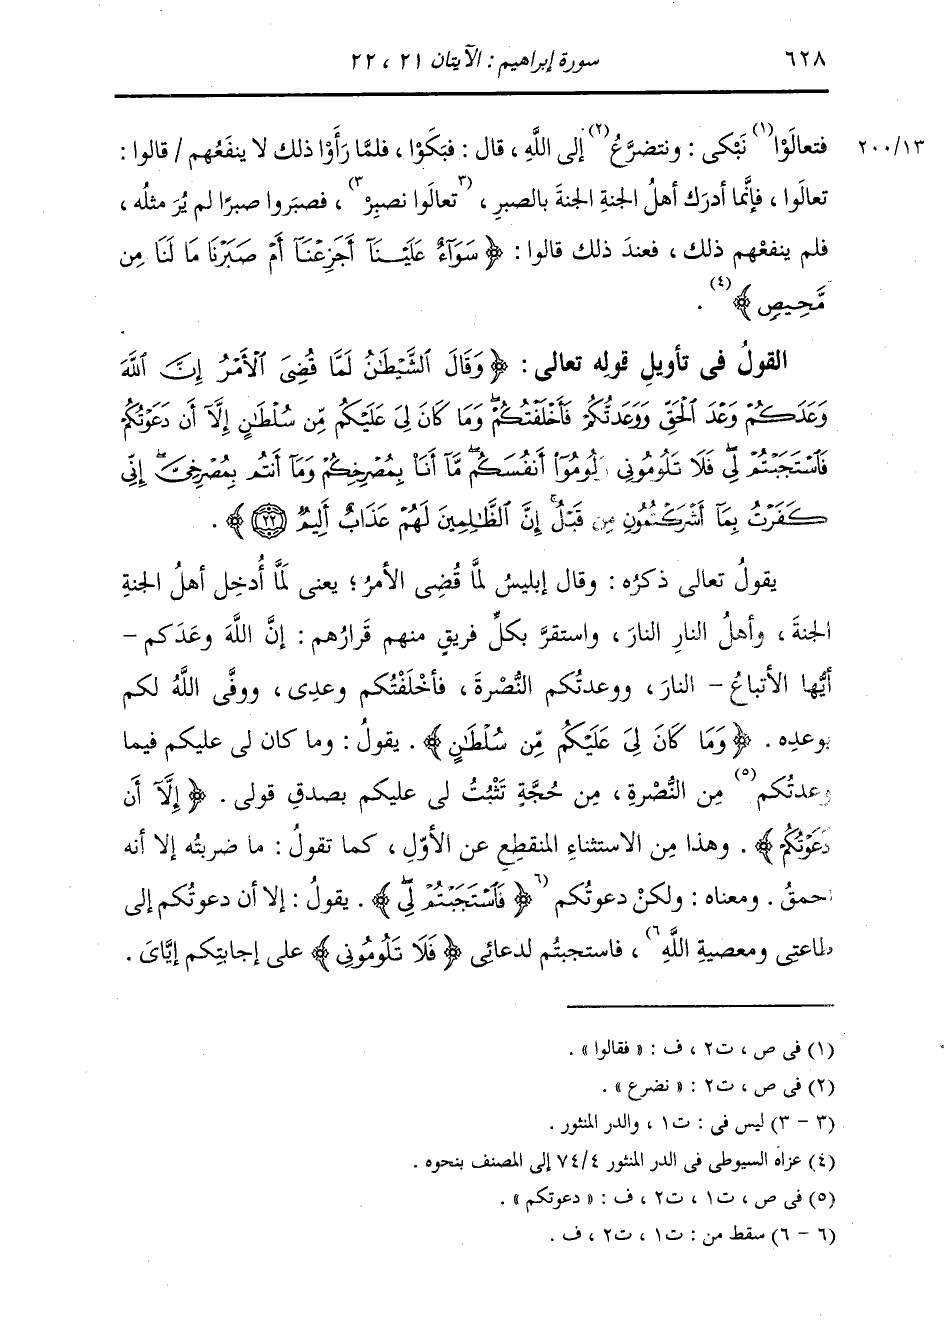 ٦٢٨ سورة إبراهيم : الآيتان ٢١ ، ٢٢
٢٠٠/١٣ فتعالَوْا(١) نَبْكى : ونتضرَّعُ(٢) إلى اللَّهِ ، قال : فبَكَوْا ، فلمَّا رَأَوْا ذلك لا ينفَعُهم / قالوا :
تعالَوا ، فإنَّما أدرَك أهلُ الجنةِ الجنةَ بالصبرِ ، (٣تعالَوا نصبِرْ٣) ، فصبَروا صبرًا لم يُرَ مثلُه ،
فلم ينفعْهم ذلك ، فعندَ ذلك قالوا : ﴿ سَوَآءٌ عَلَيْـنَآ أَجَزِعْنَآ أَمْ صَبَرْنَا مَا لَنَا مِن
مَّحِيصٍ ﴾(٤) .
القولُ فى تأويلِ قولِه تعالى : ﴿ وَقَالَ ٱلشَّيْطَٰنُ لَمَّا قُضِىَ ٱلْأَمْرُ إِنَّ ٱللَّهَ
وَعَدَكُمْ وَعْدَ ٱلْحَقِّ وَوَعَدتُّكُمْ فَأَخْلَفْتُكُمْۖ وَمَا كَانَ لِىَ عَلَيْكُم مِّن سُلْطَٰنٍ إِلَّآ أَن دَعَوْتُكُمْ
فَٱسْتَجَبْتُمْ لِىۖ فَلَا تَلُومُونِى وَلُومُوٓا۟ أَنفُسَكُمۖ مَّآ أَنَا۠ بِمُصْرِخِكُمْ وَمَآ أَنتُم بِمُصْرِخِىَّۖ إِنِّى
كَفَرْتُ بِمَآ أَشْرَكْتُمُونِ مِن قَبْلُۗ إِنَّ ٱلظَّٰلِمِينَ لَهُمْ عَذَابٌ أَلِيمٌ ٢٢ ﴾ .
يقولُ تعالى ذكرُه : وقال إبليسُ لمَّا قُضِى الأمرُ ؛ يعنى لَمَّا أُدخِل أهلُ الجنةِ
الجنةَ ، وأهلُ النارِ النارَ ، واستقرَّ بكلِّ فريقٍ منهم قَرارُهم : إنَّ اللَّهَ وعَدَكم –
أيُّها الأتباعُ – النارَ ، ووعدتُكم النُّصْرةَ ، فأخْلَفْتُكم وعدِى ، ووفَّى اللَّهُ لكم
بوعدِه . ﴿ وَمَا كَانَ لِىَ عَلَيْكُم مِّن سُلْطَٰنٍ ﴾ . يقولُ : وما كان لى عليكم فيما
وعدتُكم(٥) مِن النُّصْرةِ ، مِن حُجَّةٍ تَثْبُتُ لى عليكم بصدقِ قولى . ﴿ إِلَّآ أَن
دَعَوْتُكُمْ ﴾ . وهذا مِن الاستثناءِ المنقطِعِ عن الأوَّلِ ، كما تقولُ : ما ضربتُه إلا أنه
أحمقُ . ومعناه : ولكنْ دعوتُكم (٦﴿ فَٱسْتَجَبْتُمْ لِىۖ ﴾ . يقولُ : إلا أن دعوتُكم إلى
طاعتِى ومعصيةِ اللَّهِ٦) ، فاستجبتُم لدعائِى ﴿ فَلَا تَلُومُونِى ﴾ على إجابتِكم إيَّاىَ .
(١) فى ص ، ت٢ ، ف : « فقالوا » .
(٢) فى ص ، ت٢ : « نضرع » .
(٣ – ٣) ليس فى : ت١ ، والدر المنثور .
(٤) عزاه السيوطى فى الدر المنثور ٧٤/٤ إلى المصنف بنحوه .
(٥) فى ص ، ت١ ، ت٢ ، ف : « دعوتكم » .
(٦ – ٦) سقط من : ت١ ، ت٢ ، ف .